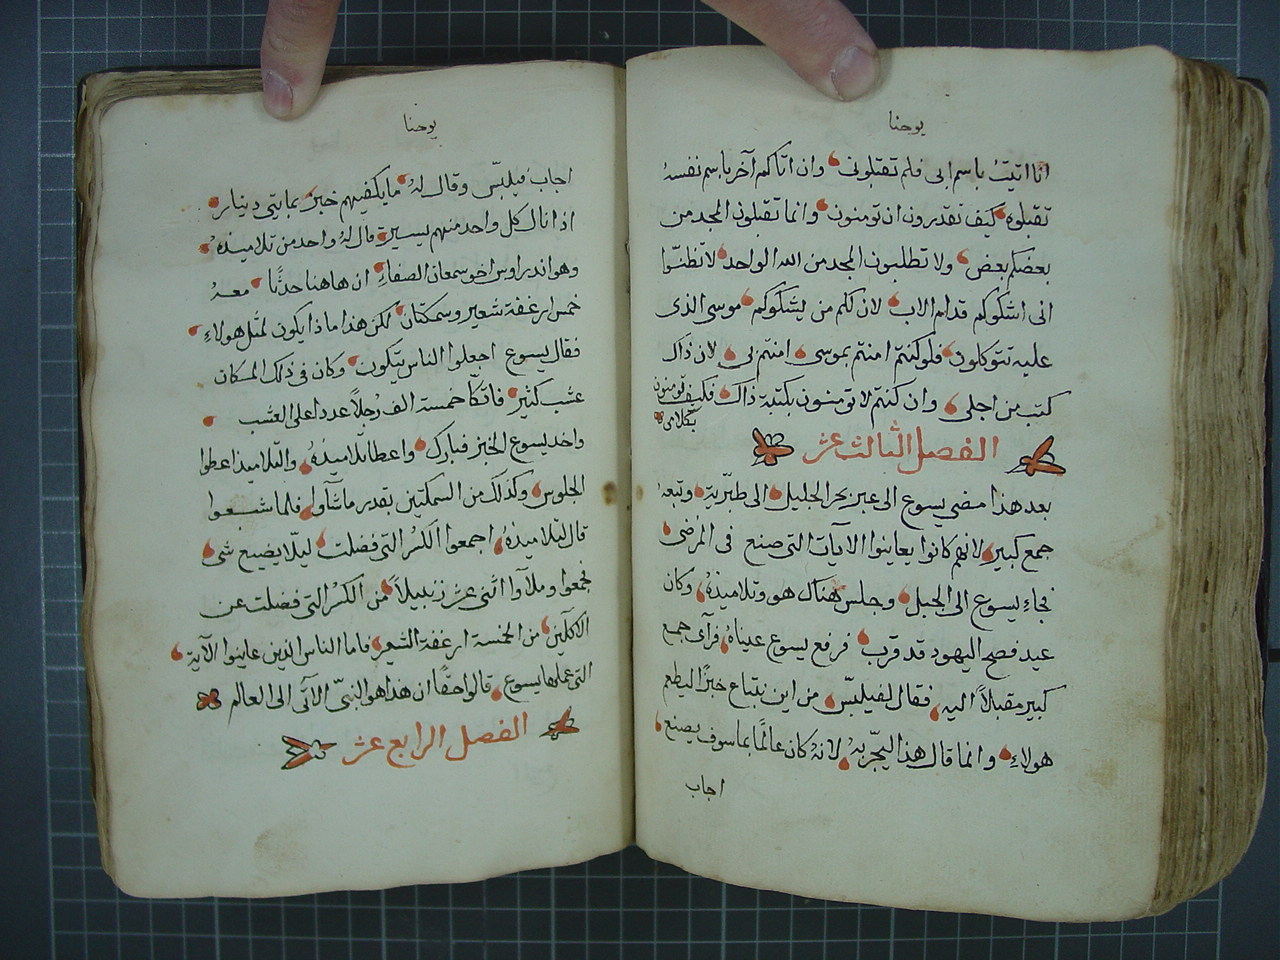 يوحنا
انا اتيت باسم ابى فلم تقبلونى وان اتاكم آخر باسم نفسه
تقبلوه كيف تقدرون ان تومنون وانما تقبلون المجد من
بعضكم بعض ولا تطلبون المجد من الله الواحد لا تظنّوا
انى اشكوكم قدام الاب لان لكم من يشكوكم موسى الذى
عليه تتوكلون فلو كنتم امنتم بموسى امنتم بى لان ذاك
كتب من اجلى وان كنتم لا تومنون بكتبة ذاك فكيف تومنون
بكلامى
الفصل الثالث عشر
بعد هذا مضى يسوع الى عبر بحر الجليل الى طبّرية وتبعه
جمع كبير لانهم كانوا يعاينوا الآيات التى صنع فى المرضى
فجاء يسوع الى الجبل وجلس هناك هو وتلاميذه وكان
عيد فصح اليهود قد قرب فرفع يسوع عيناه فرآى جمع
كبير مقبلاً اليه فقال لفيلبّس من اين نبتاع خبزًا ليطعم
هولاء وانما قال هذا ليجّربه لانه كان عالمًا بما سوف يصنع
اجاب
يوحنا
اجاب فيلبّس وقال له ما يكفيهم خبز بمايتى دينار
اذا نال كل واحد منهم يسير قال له واحد من تلاميذه
وهو اندراوس اخو سمعان الصفاء ان هاهنا حدثًا معه
خمس ارغفة شعير وسمكتان لكن هذا ماذا يكون لمثل هولاء
فقال يسوع اجعلوا الناس يتكون وكان فى ذلك المكان
عشب كثير فاتكّا خمسة الف رجلاً عددا على العشب
واخد يسوع الخبز فبارك واعطا تلاميذه والتلاميذ اعطوا
الجلوس وكذلك من السمكتين بقدر ما شآوا فلما شبعوا
قال لتلاميذه اجمعوا الكسر التى فضلت ليلّا يضيع شى
فجمعوا وملآوا اثنى عشر زنبيلاً من الكسر التى فضلت عن
الاكلين من الخمسة ارغفة الشعير فاما الناس الذين عاينوا الآية
التى عملها يسوع قالوا حقًا ان هذا هو النبىّ الآتى الى العالم
الفصل الرابع عشر